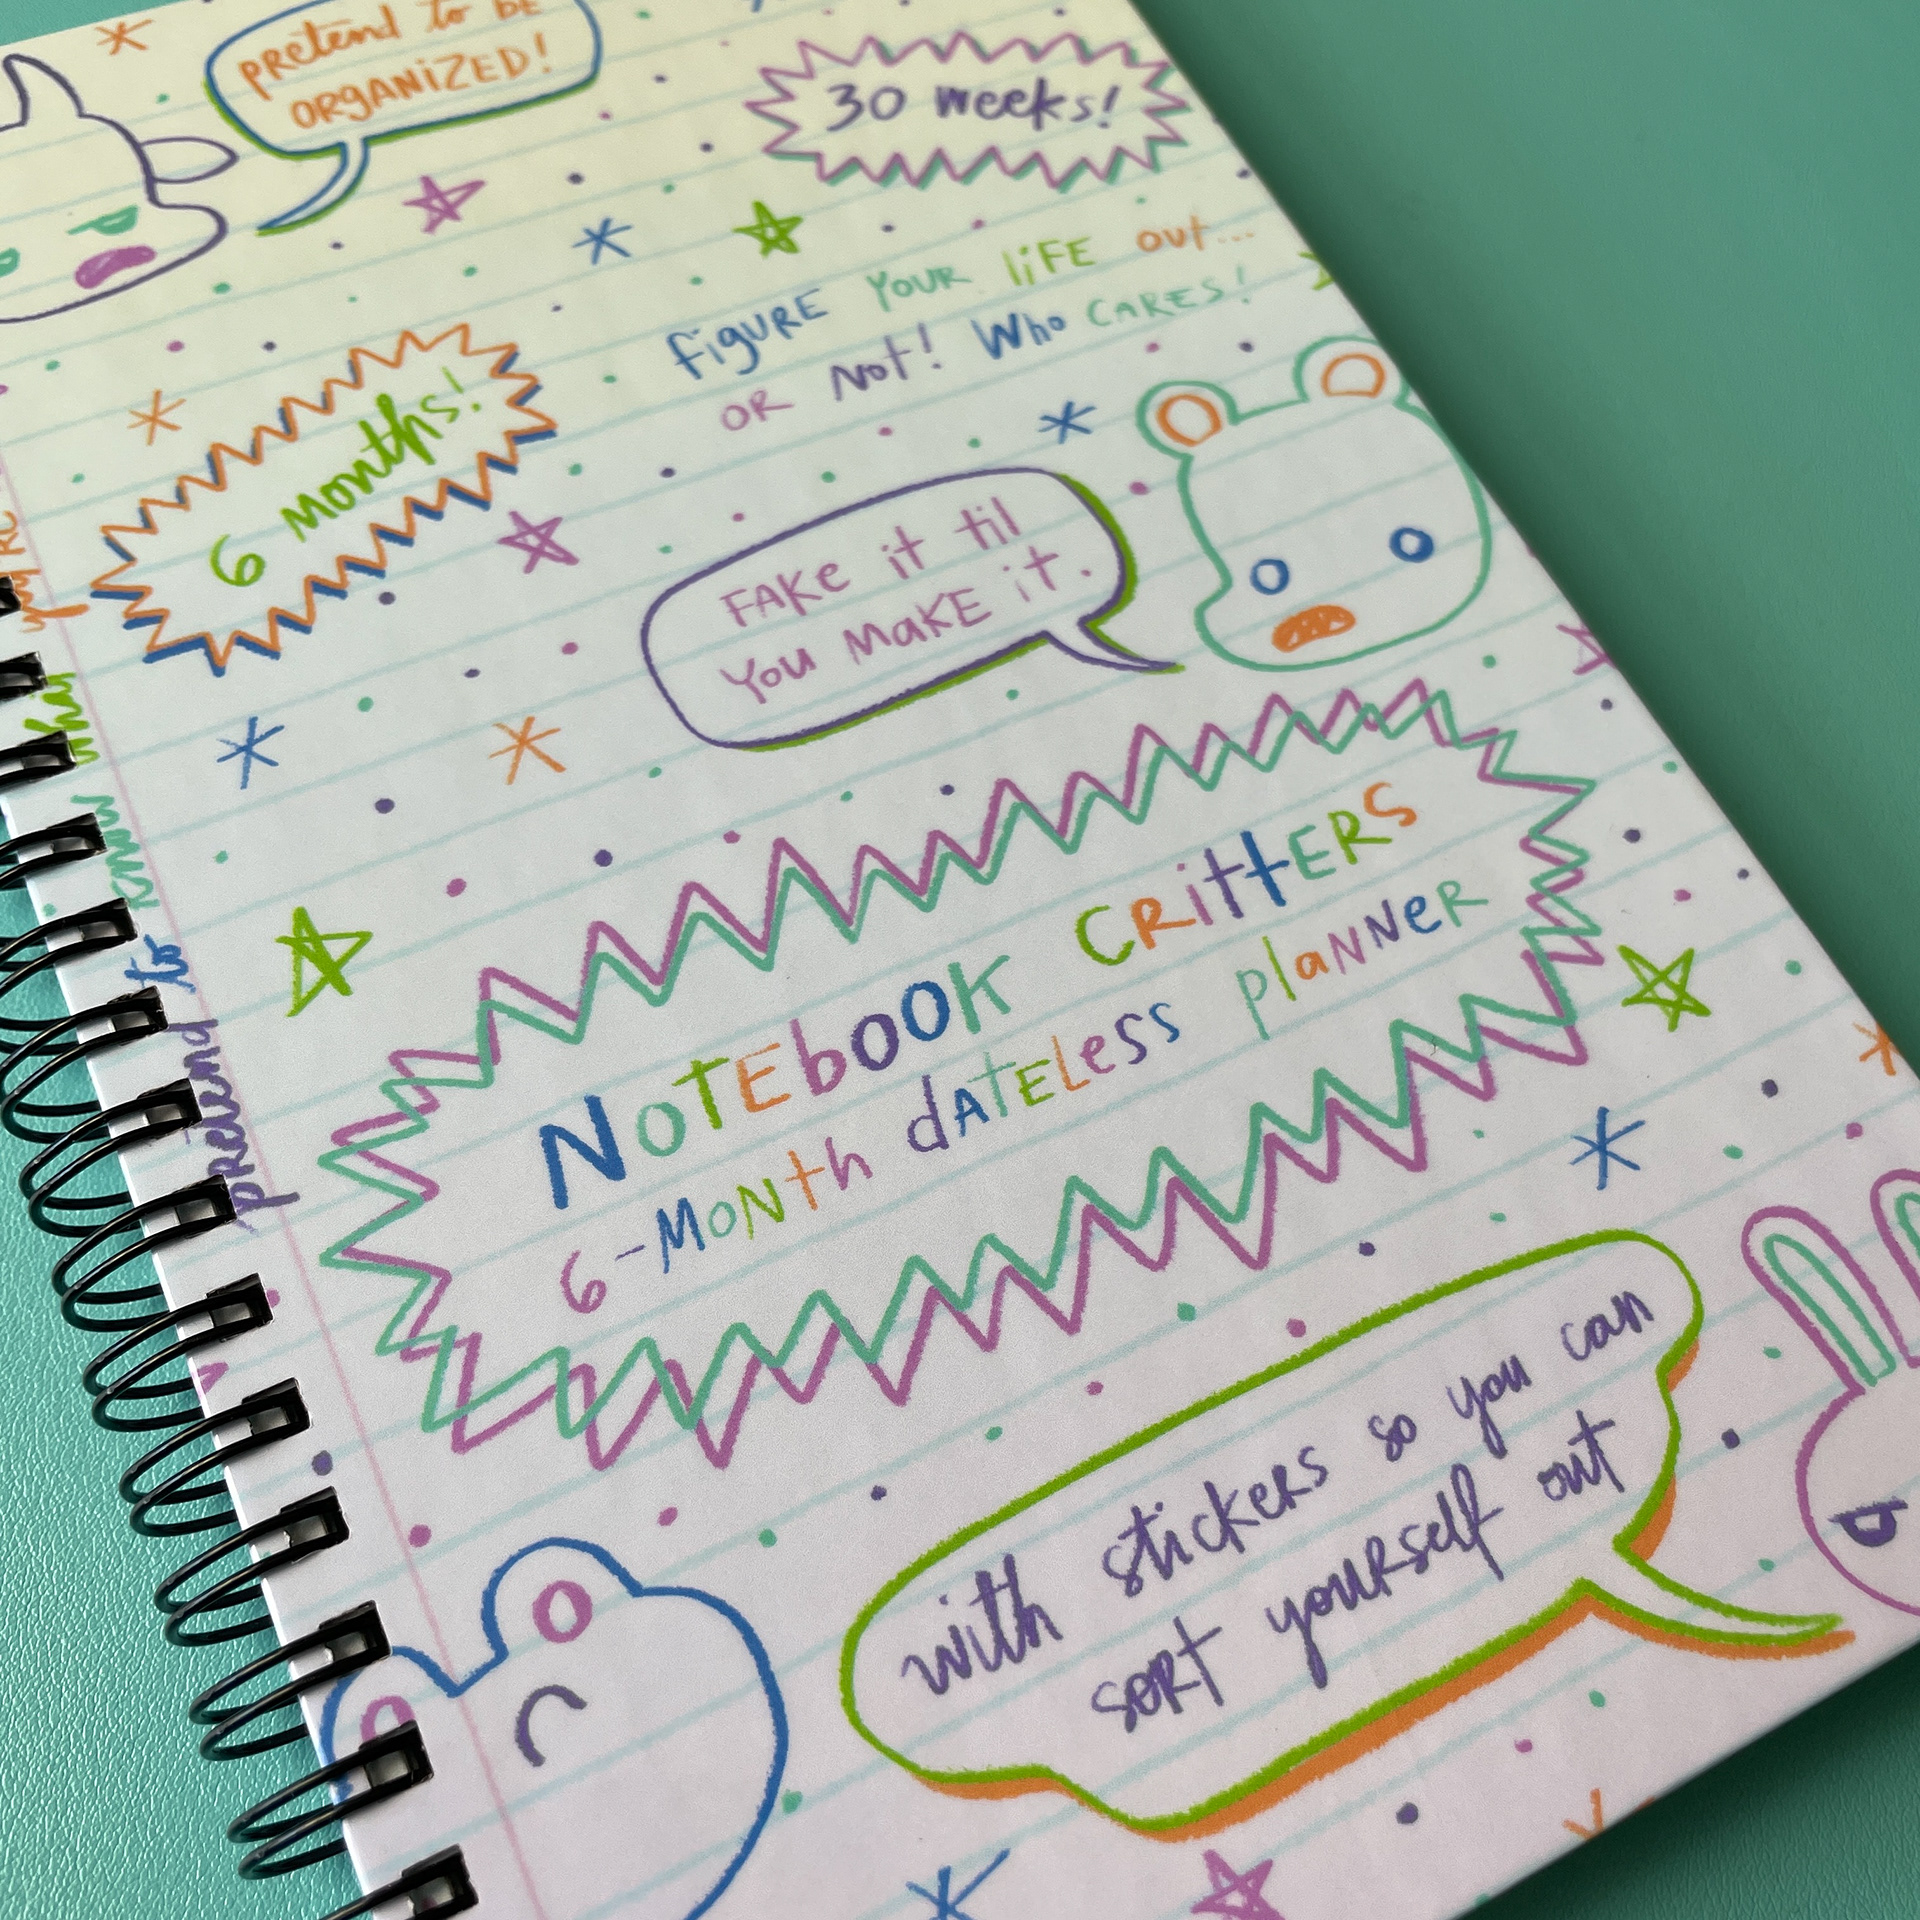 pretend to be
ORGANIZED!
30 weeks!
Figure your life out...
or Not! Who cares!
6 Months!
Fake it til
you make it.
Notebook Critters
6-Month dateless planner
with stickers so you can
sort yourself out
pretend to